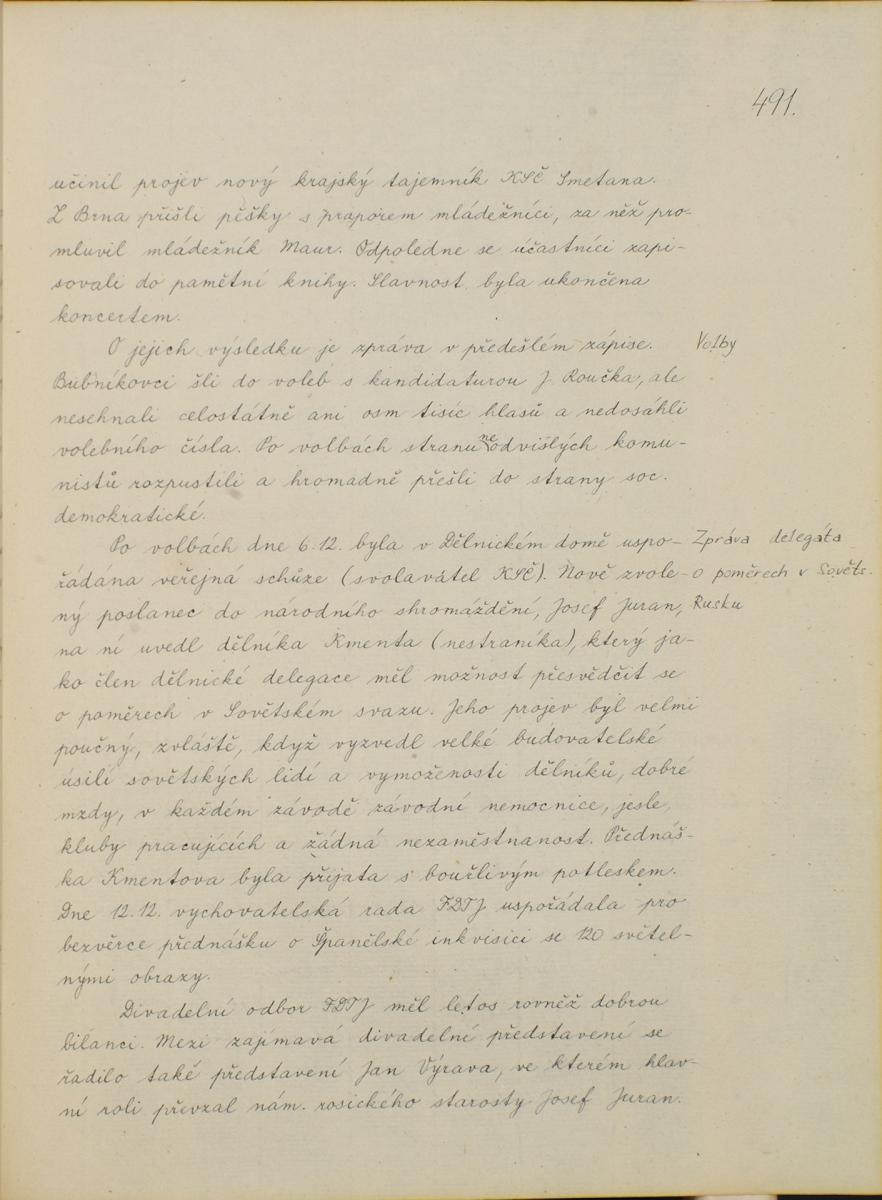 491.
učinil projev nový krajský tajemník KSČ Smetana.
Z Brna přišli pěšky s praporem mládežníci, za něž pro-
mluvil mládežník Maur. Odpoledne se účastníci zapi-
sovali do pamětní knihy. Slavnost byla ukončena
koncertem.
O jejich výsledku je zpráva v předešlém zápise. Volby
Bubníkovci šli do voleb s kandidaturou J. Roučka, ale
nesehnali celostátně ani osm tisíc hlasů a nedosáhli
volebního čísla. Po volbách stranu neodvislých komu-
nistů rozpustili a hromadně přešli do strany soc.
demokratické.
Po volbách dne 6.12. byla v Dělnickém domě uspo- Zpráva delegáta
řádána veřejná schůze (svolavatel KSČ). Nově zvole- o poměrech v Sověts.
ný poslanec do národního shromáždění, Josef Juran, Rusku
na ní uvedl dělníka Kmenta (nestraníka), který ja-
ko člen dělnické delegace měl možnost přesvědčit se
o poměrech v Sovětském svazu. Jeho projev byl velmi
poučný, zvláště, když vyzvedl velké budovatelské
úsilí sovětských lidí a vymoženosti dělníků, dobré
mzdy, v každém závodě závodní nemocnice, jesle,
kluby pracujících a žádná nezaměstnanost. Přednáš-
ka Kmentova byla přijata s bouřlivým potleskem.
Dne 12.12. vychovatelská rada FDTJ uspořádala pro
bezvěrce přednášku o Španělské inkvisici se 120 světel-
nými obrazy.
Divadelní odbor FDTJ měl letos rovněž dobrou
bilanci. Mezi zajímavá divadelní představení se
řadilo také představení Jan Výrava, ve kterém hlav-
ní roli převzal nám. rosického starosty Josef Juran.